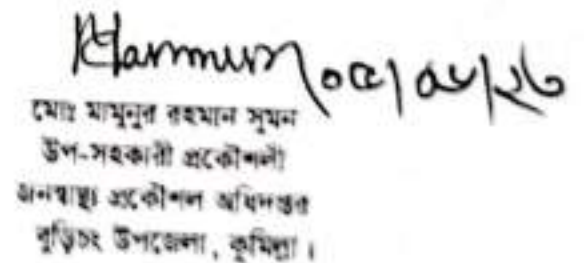 ০৫/০৮/২৬
মোঃ মামুনুর রহমান সুমন
উপ-সহকারী প্রকৌশলী
জনস্বাস্থ্য প্রকৌশল অধিদপ্তর
বুড়িচং উপজেলা, কুমিল্লা।